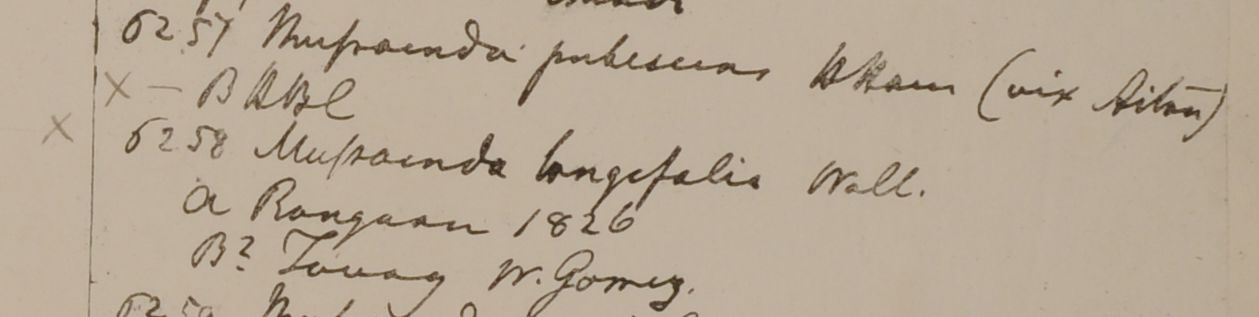 6257 Mussaenda pubescens HHam (vix Aiton)
x - B HBC
x 6258 Mussaenda longifolia Wall.
a Rangoon 1826
B? Tavoy W. Gomez.
6259